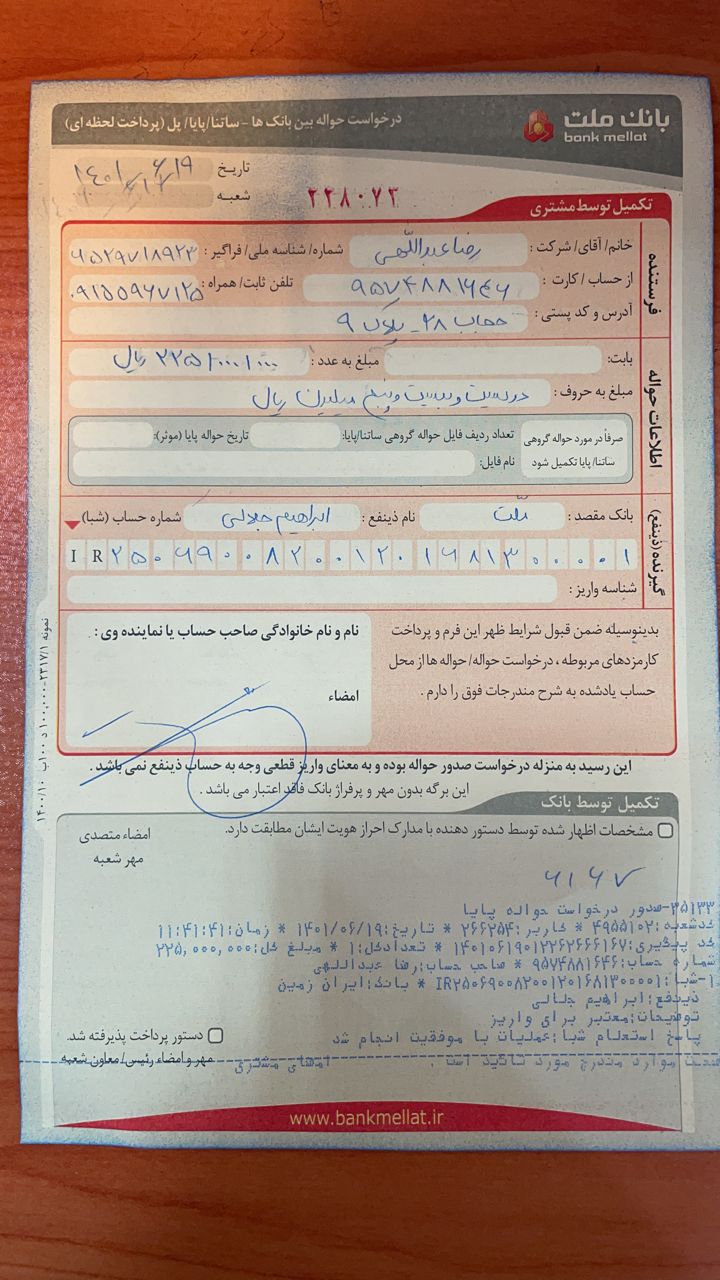 بانک ملت
bank mellat
درخواست حواله بین بانک ها - ساتنا/پایا/ پل (پرداخت لحظه ای)
تاریخ ۱۴۰۱/۶/۱۹
شعبه
۲۲۸۰۷۳
تکمیل توسط مشتری
فرستنده
خانم/ آقای/ شرکت : رضا عبداللهی شماره/ شناسه ملی/ فراگیر : ۶۵۲۹۷۱۸۹۲۳
از حساب / کارت : ۹۵۷۴۸۸۱۶۴۶ تلفن ثابت/ همراه : ۰۹۱۵۵۹۶۷۱۲۵
آدرس و کد پستی : حجاب ۲۸ - پلاک ۹
اطلاعات حواله
بابت: مبلغ به عدد : ۲۲۵/۰۰۰/۰۰۰ ریال
مبلغ به حروف : دویست و بیست و پنج میلیون ریال
صرفاً در مورد حواله گروهی ساتنا/ پایا تکمیل شود
تعداد ردیف فایل حواله گروهی ساتنا/پایا: تاریخ حواله پایا (موثر):
نام فایل:
گیرنده (ذینفع)
بانک مقصد : ملت نام ذینفع : ابراهیم جلالی شماره حساب (شبا)
IR۲۵۰۶۹۰۰۸۲۰۰۱۲۰۱۶۸۱۳۰۰۰۰۱
شناسه واریز :
بدینوسیله ضمن قبول شرایط ظهر این فرم و پرداخت
کارمزدهای مربوطه، درخواست حواله/ حواله ها از محل
حساب یادشده به شرح مندرجات فوق را دارم .
نام و نام خانوادگی صاحب حساب یا نماینده وی :
امضاء
این رسید به منزله درخواست صدور حواله بوده و به معنای واریز قطعی وجه به حساب ذینفع نمی باشد .
این برگه بدون مهر و پرفراژ بانک فاقد اعتبار می باشد .
تکمیل توسط بانک
مشخصات اظهار شده توسط دستور دهنده با مدارک احراز هویت ایشان مطابقت دارد.
امضاء متصدی
مهر شعبه
۶۱۶۷
۳۵۱۳۳-صدور درخواست حواله پایا
کدشعبه:۴۹۵۵۱۰۲ * کاربر:۲۶۶۲۵۴ * تاریخ:۱۴۰۱/۰۶/۱۹ * زمان:۱۱:۴۱:۴۱
کد پیگیری:۱۴۰۱۰۶۱۹۰۱۲۲۶۲۶۶۶۱۶۷ * تعدادکل:۱ * مبلغ کل:۲۲۵,۰۰۰,۰۰۰
شماره حساب:۹۵۷۴۸۸۱۶۴۶ * صاحب حساب:رضا عبداللهی
۱-شبا:IR۲۵۰۶۹۰۰۸۲۰۰۱۲۰۱۶۸۱۳۰۰۰۰۱ * بانک:ایران زمین
ذینفع:ابراهیم جلالی
توضیحات:معتبر برای واریز
پاسخ استعلام شبا:عملیات با موفقیت انجام شد
صحت موارد مندرج مورد تائید است . امضای مشتری
دستور پرداخت پذیرفته شد.
مهر و امضاء رئیس/ معاون شعبه
www.bankmellat.ir
نمونه ۲۳۱۷/۱-۱۰۰,۰۰۰ د ۱۰۰ ب ۱۴۰۰/۱۰